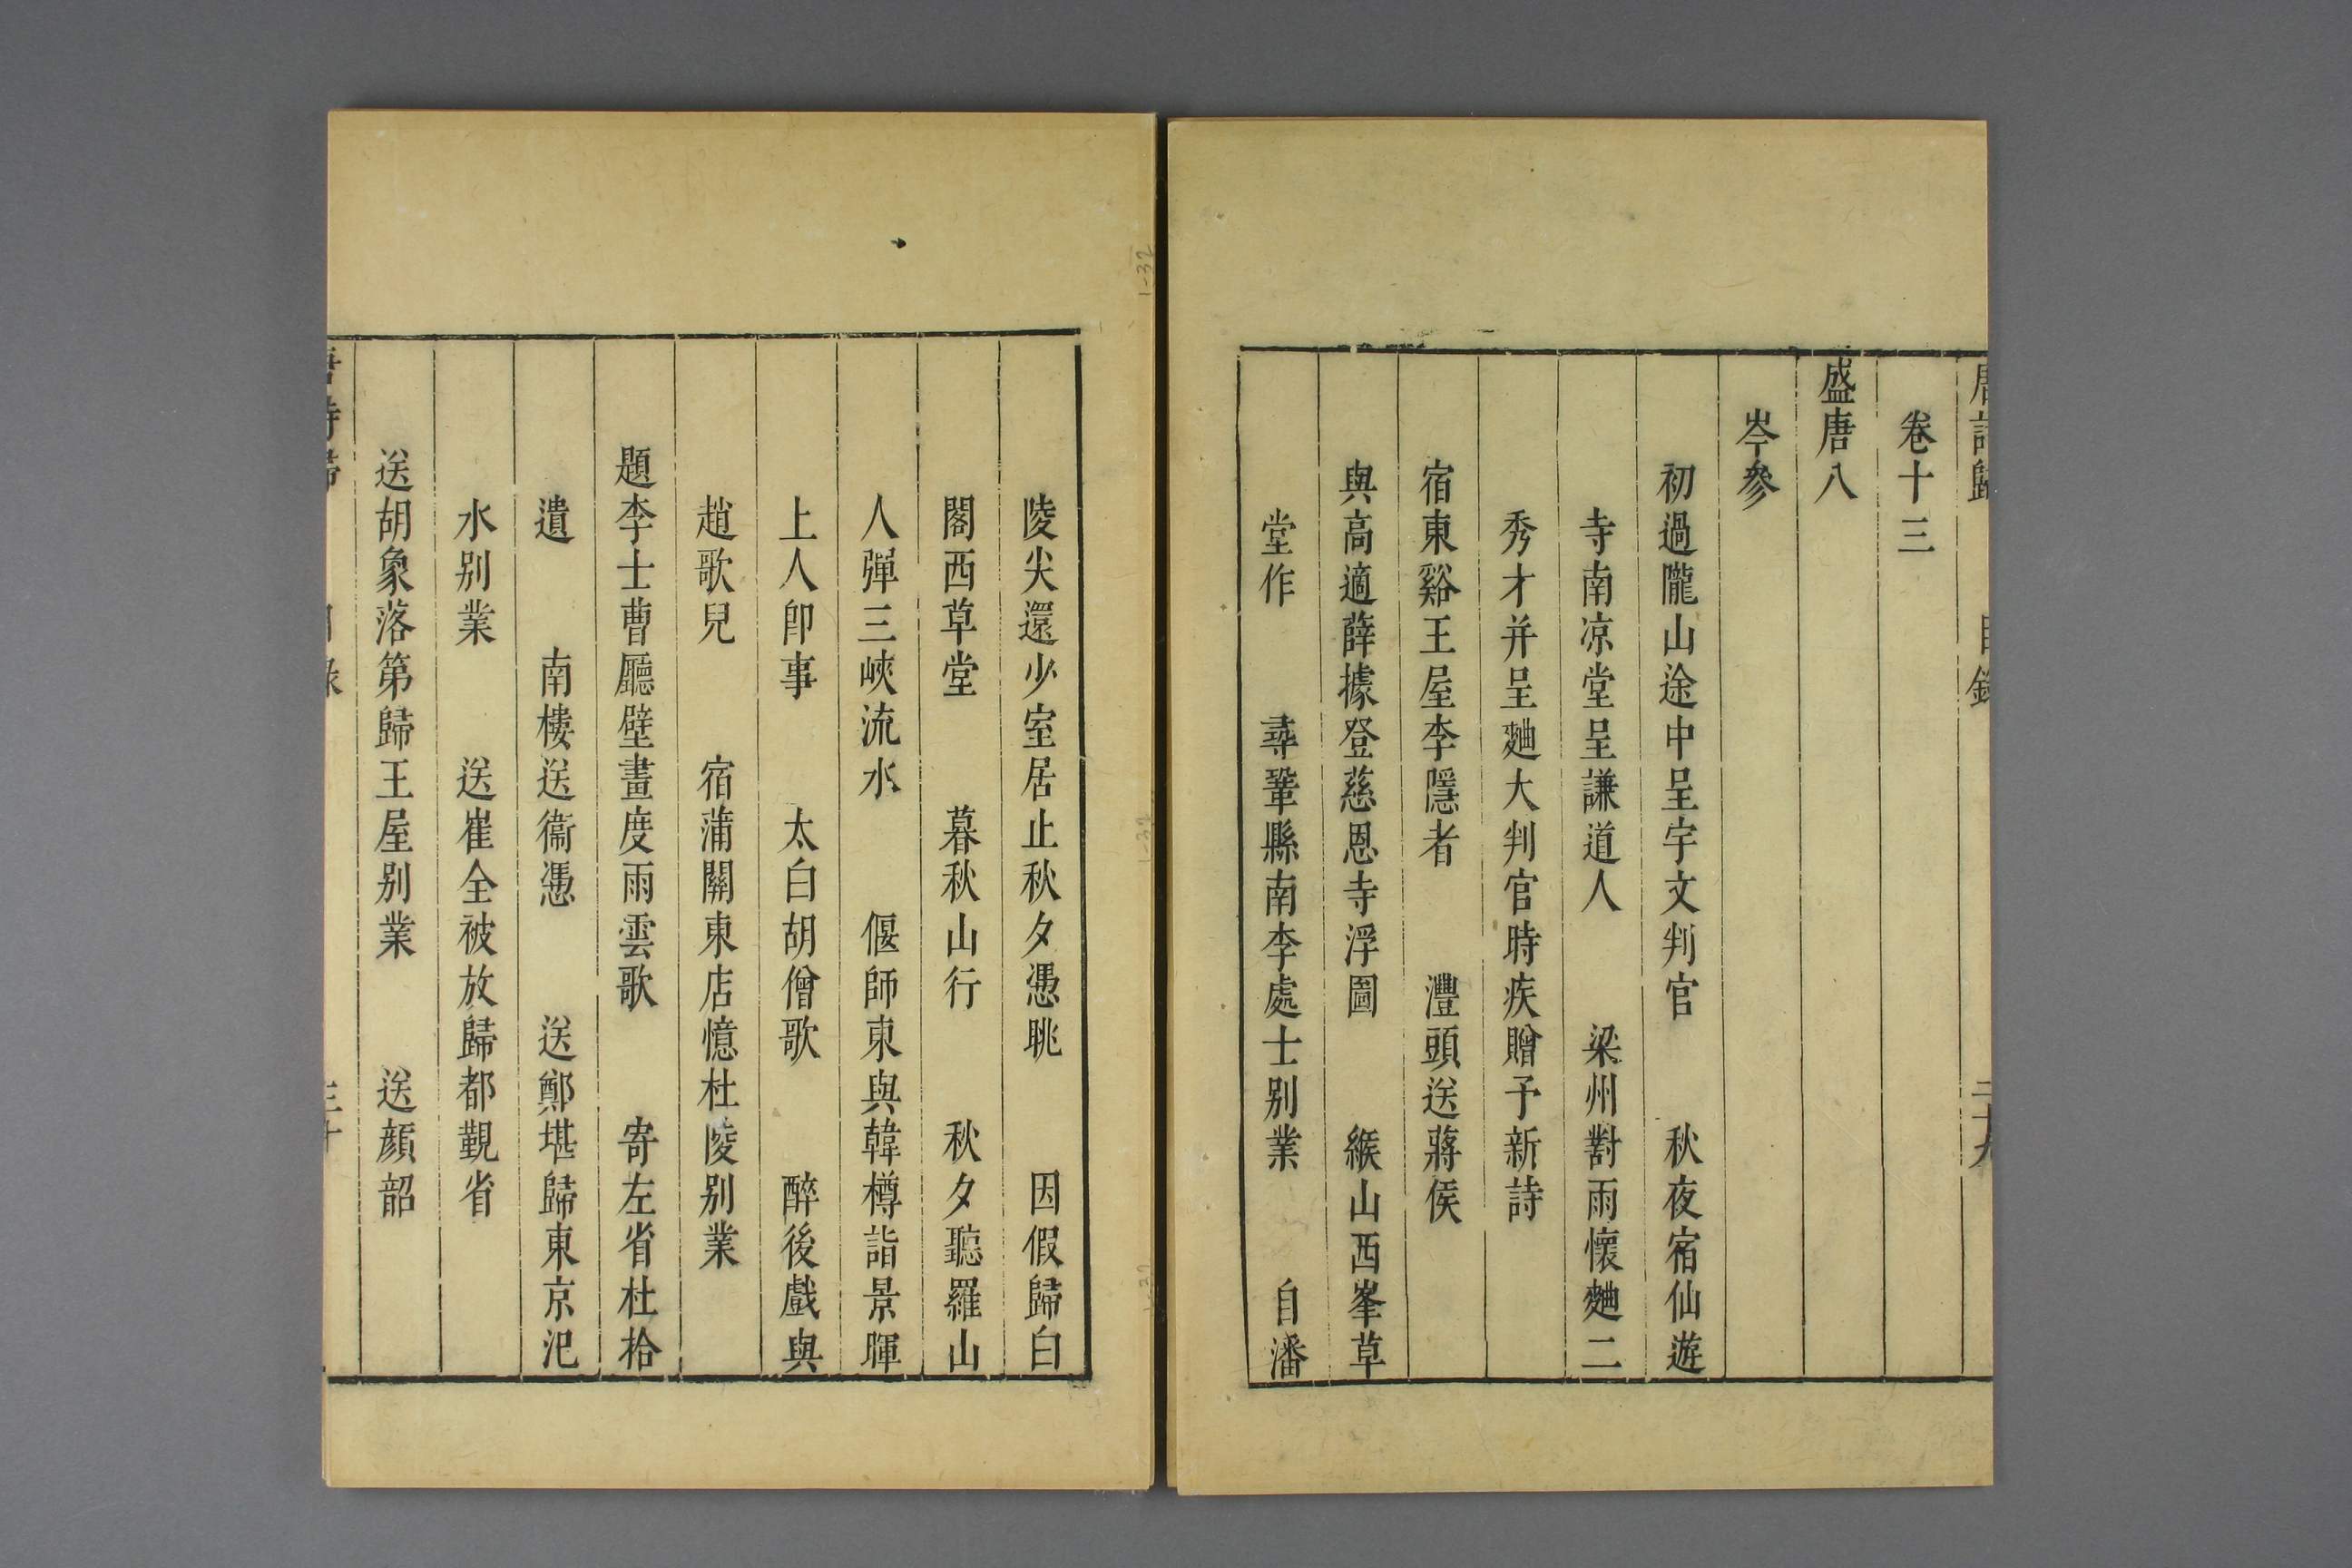 唐詩歸 目錄 二十九
卷十三
盛唐八
岑參
初過隴山途中呈宇文判官 秋夜宿仙遊
寺南凉堂呈謙道人 梁州對雨懷麯二
秀才并呈麯大判官時疾贈予新詩
宿東谿王屋李隱者 灃頭送蔣侯
與高適薛據登慈恩寺浮圖 緱山西峯草
堂作 尋鞏縣南李處士别業 自潘
陵尖還少室居止秋夕憑眺 因假歸白
閣西草堂 暮秋山行 秋夕聽羅山
人彈三峽流水 偃師東與韓樽詣景暉
上人卽事 太白胡僧歌 醉後戲與
趙歌兒 宿蒲關東店憶杜陵别業
題李士曹廳壁畫度雨雲歌 寄左省杜拾
遺 南樓送衞憑 送鄭堪歸東京汜
水别業 送崔全被放歸都覲省
送胡象落第歸王屋别業 送顔韶
唐詩歸 目錄 三十
1-32
1-32
1-32